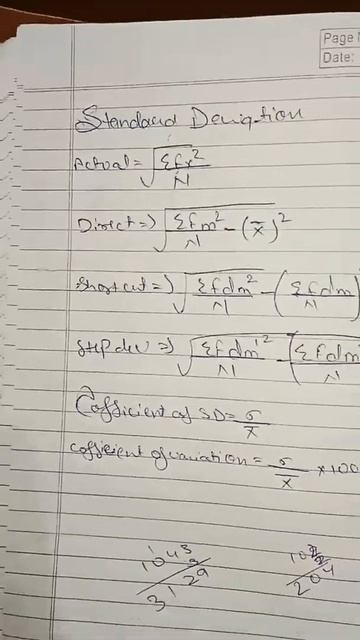 Page
Date:
Standard Deviation
Actual = √Σfx²/N
Direct => √Σfm²/N - (x̄)²
Shortcut => √Σfdm²/N - (Σfdm/N)
Step dev => √Σfdm'²/N - (Σfdm/N
Cofficient of SD = σ/x̄
cofficient of variation = σ/x̄ × 100